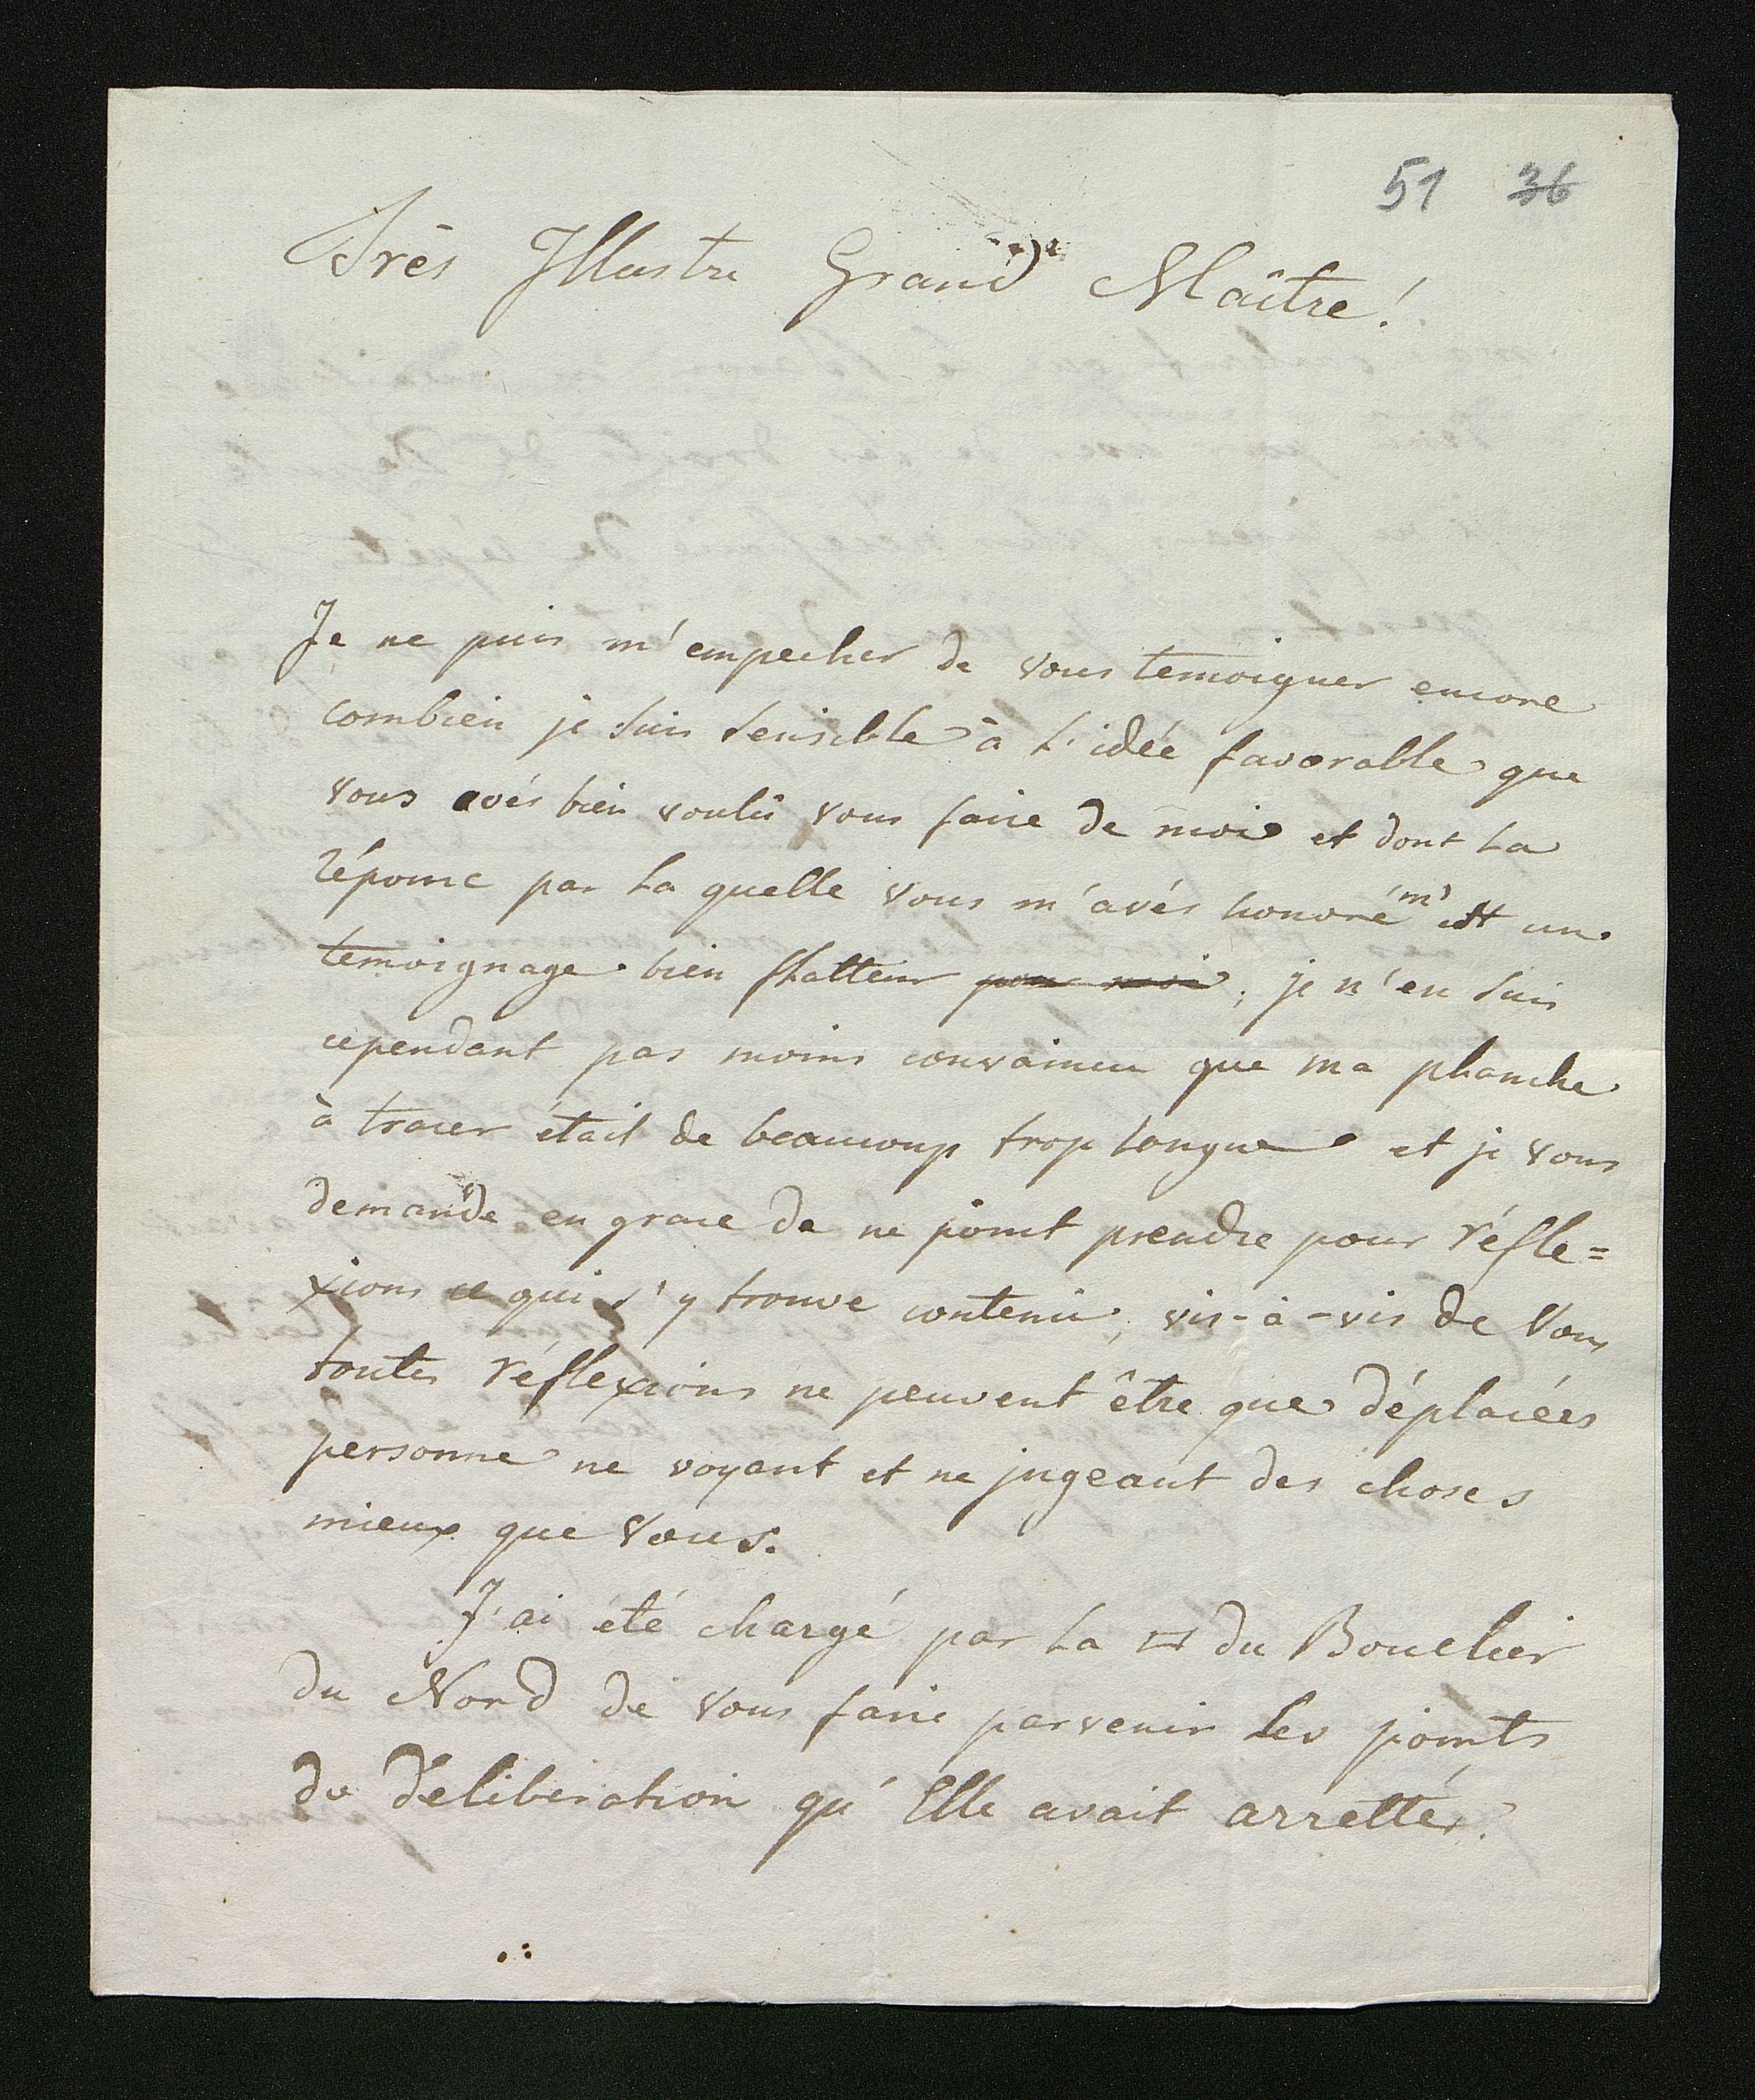 51 36
Très Illustre Grand Maître!
Je ne puis m'empecher de vous temoigner encore
combien je suis sensible à l'idée favorable que
vous avés bien voulû vous faire de moi et dont la
réponse par la quelle vous m'avés honoré m'est un
temoignage bien flatteur pour moi; je n'en suis
cependant pas moins convaincu que ma planche
à tracer était de beaucoup trop longue et je vous
demande en grace de ne point prendre pour réfle=
xions ce qui s'y trouve contenû, vis-à-vis de Vous
toutes réflexions ne peuvent être que déplacées
personne ne voyant et ne jugeant des choses
mieux que Vous.
J'ai été chargé par la ▭ du Bouclier
du Nord de Vous faire parvenir les points
de déliberation qu'Elle avait arrettés.